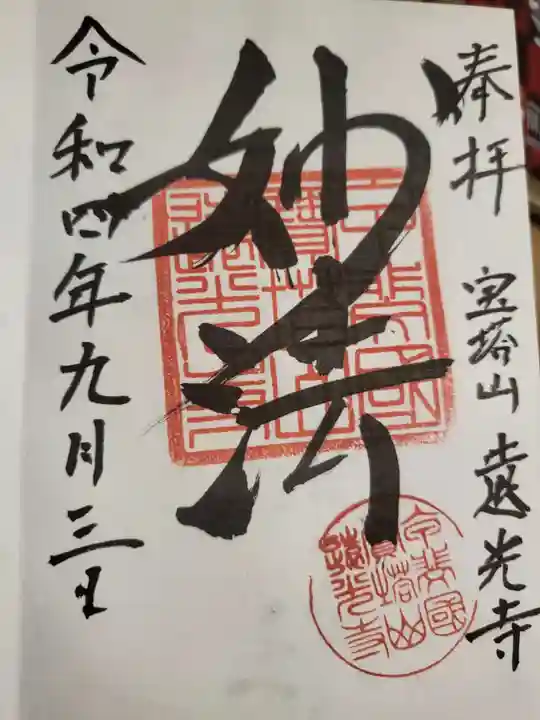 奉拝
宝塔山 遠光寺
妙法
令和四年九月三日
甲斐國
寳塔山
遠光寺